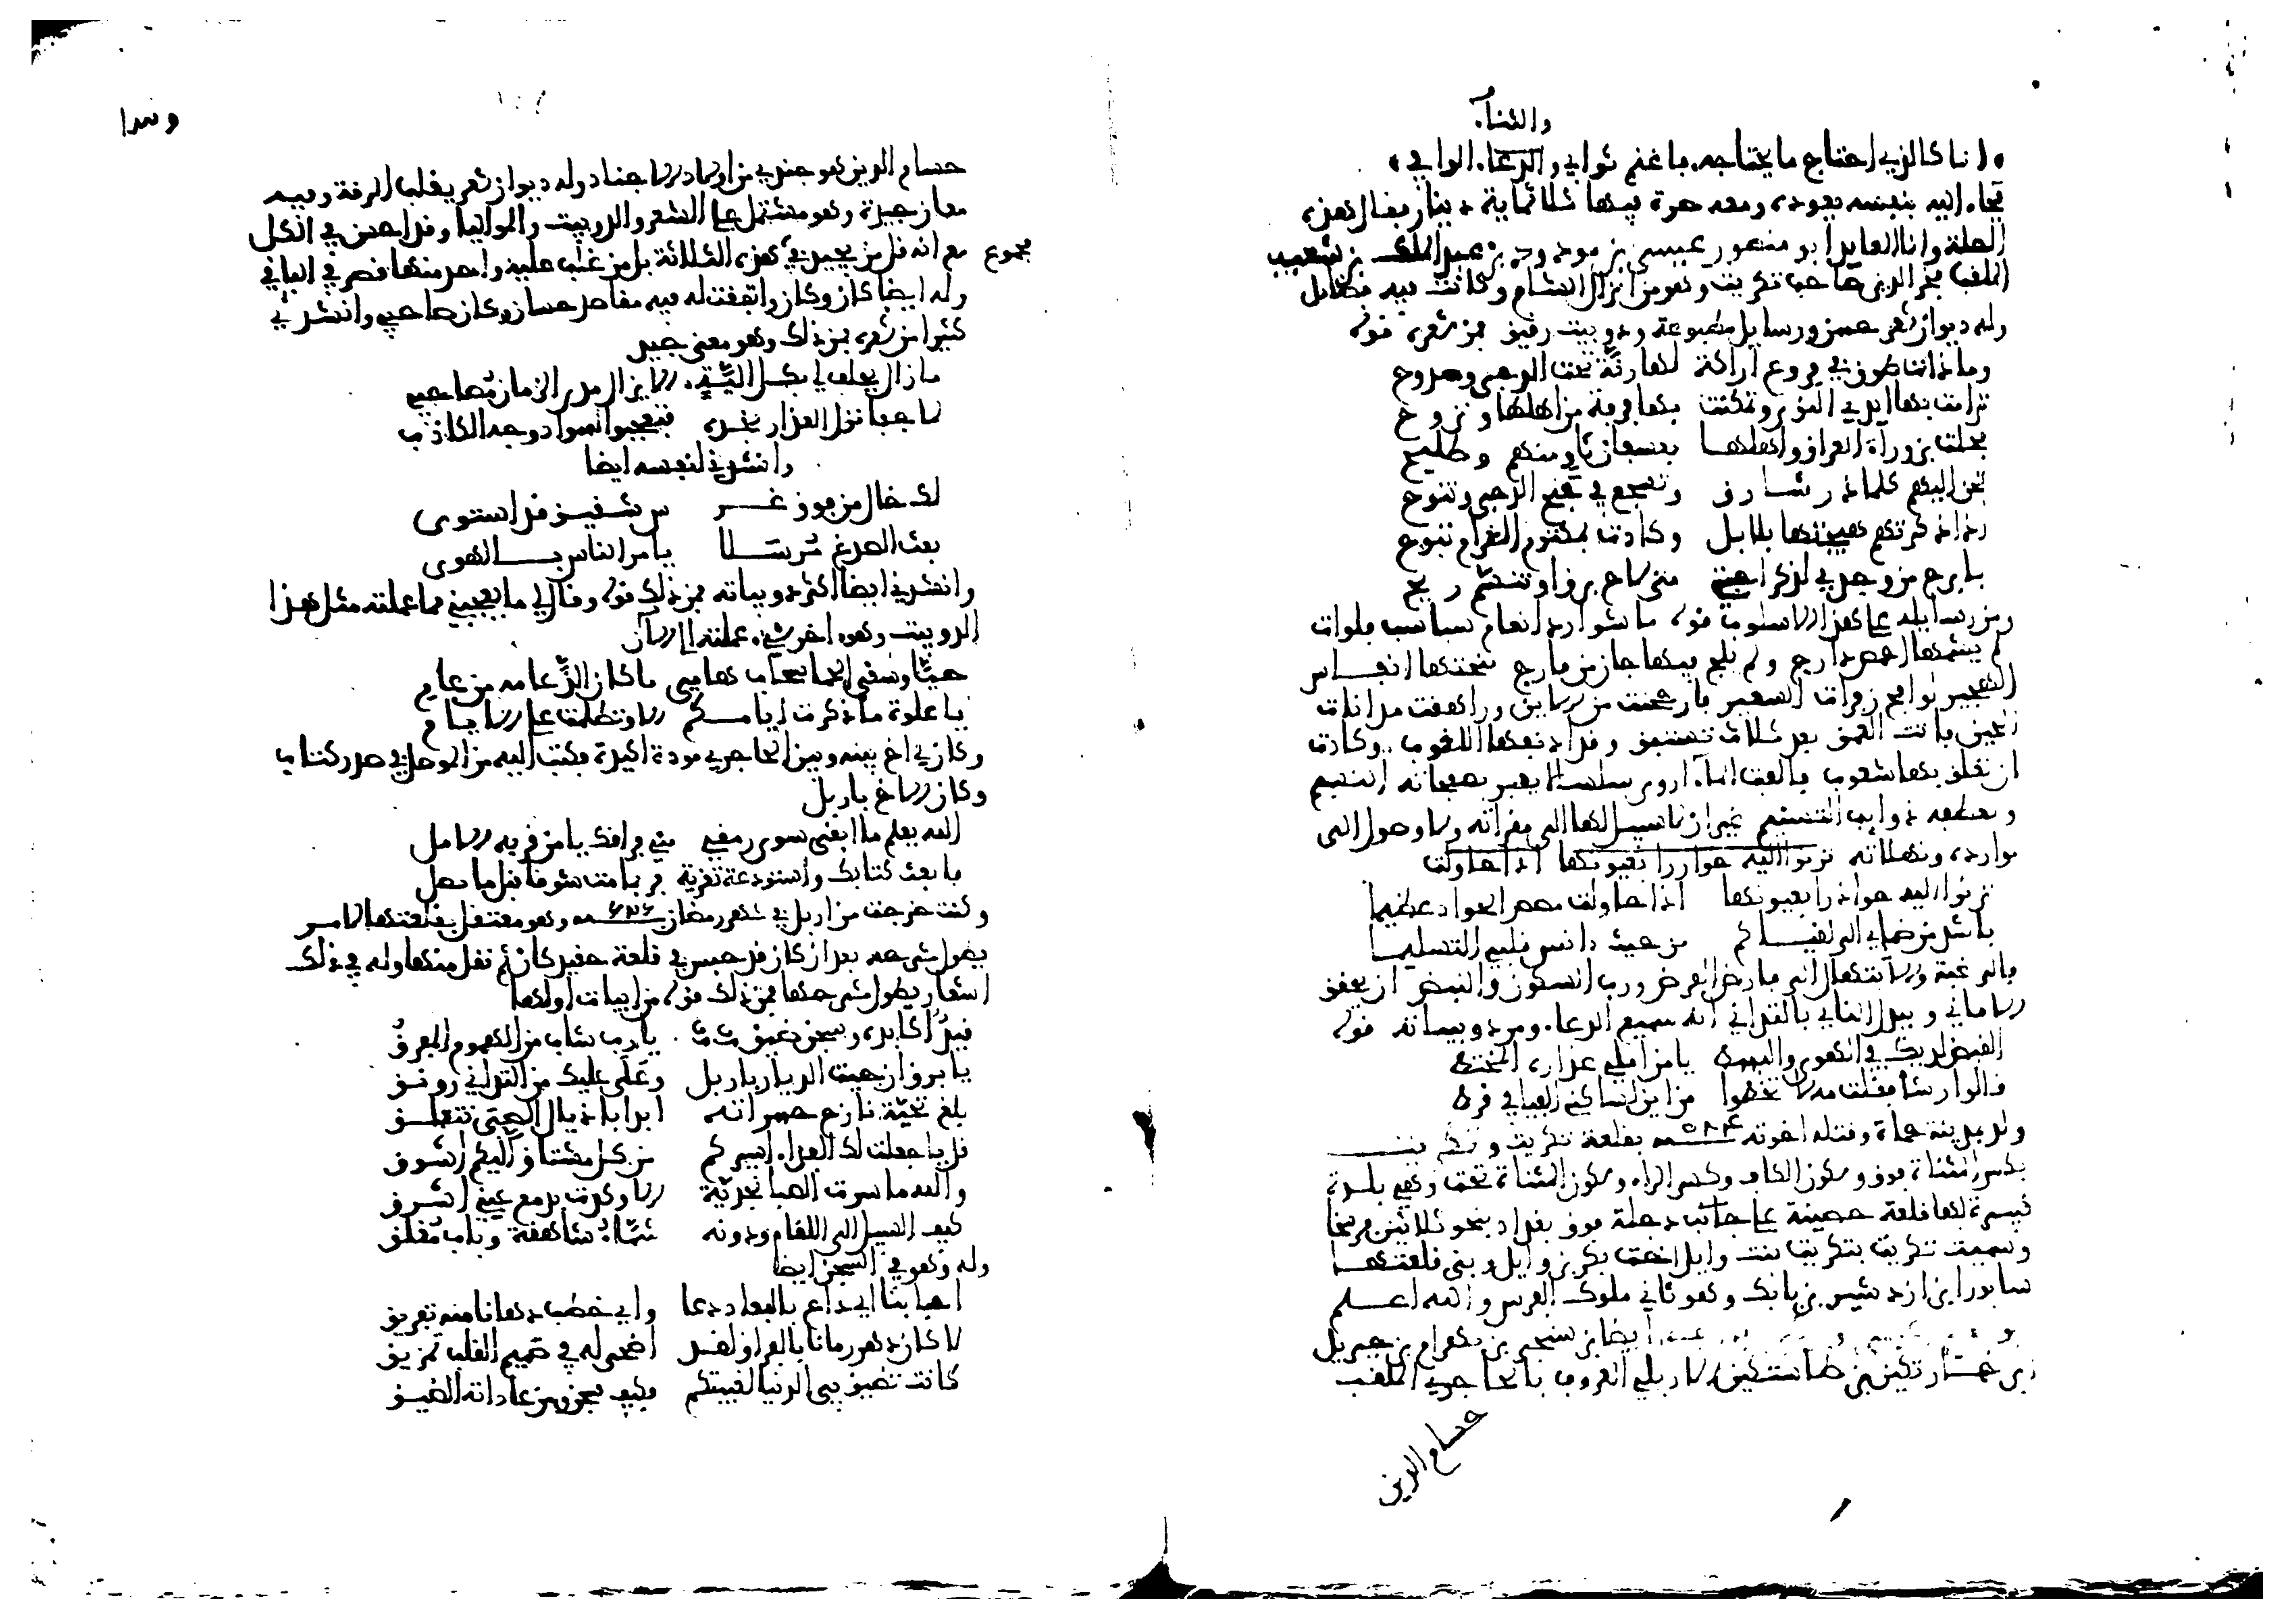 والثناء
انا كالذي احتاج ما يحتاجه فاغنم ثوابي والدعاء الوافي
فجاء اليه بنفسه يعوده ومعه صرة فيها ثلاثماية دينار فقال هذه
الصلة وانا العايد ابو منصور عيسى بن مودود بن عبد الملك بن شعيب
الملقب فخر الدين صاحب تكريت وهو من اتراك الشام وكانت فيه فضايل
وله ديوان شعر حسن ورسايل مطبوعة ودوبيت رقيق فمن شعره قوله
وما ذات طوق في فروع اراكة لها رنة تحت الدجى وصدوح
ترامت بها ايدي النوى وتمكنت بها فرقة من اهلها ونزوح
فحلت بزوراء العراق واهلها بعسفان ثاو منهم وطليح
تحن اليهم كلما ذر شارق وتسجع في جنح الدجى وتنوح
اذا ذكرتهم هيجتها بلابل وكادت بمكتوم الغرام تبوح
بابرح من وجدي لذكراكم متى لاح برق او تنسم ريح
ومن رسايله على هذا الاسلوب قوله ما شوارد انعام سباسب فلوات
لم يشمها اخمص دارج ولم يلج فيها جان من مارج نفحتها انفاس
الهجير لوافح زفرات السعير فارجحنت من الاين وراهقت مدانات
الحين باتت العمق بعد ثلاث تستبق وقد انهكها اللغوب وكادت
ان تعلق بها شعوب فالفت الماء اروى سلسالا يعبر بصفحاته النسيم
وتصفقه ذوايب التسنيم غير ان لا سبيل لها الى مقراته ولا وصول الى
موارده ونهلاته ترنوا اليه حواررا بعيونها اذا حاولت
ترنوا اليه حواذرا بعيونها اذا حاولت مصر الجواد عظيما
باشد من ظمإي الى لقياكم من حيث دانس قلبي التسليما
فالرغبة والابتهال الى فارض الفرض ورب السكون والنبض ان يحقق
الاماني وييدل التنائي بالتداني انه سميع الدعاء ومن دوبيتاته قوله
القبض لديك في الهوى والبسط يا من املي عذاره المختط
قالوا رشا فقلت مه لا تخطوا من اين لساكني الفيافي قرط
ولد بمدينة حماة وقتله اخوته سنة ٥٨٤ بقلعة تكريت وتكريت
بكسر المثناة فوق وسكون الكاف وكسر الراء وسكون المثناة تحت وهي بلدة
كبيرة لها قلعة حصينة على جانب دجلة فوق بغداد بنحو ثلاثين فرسخا
وسميت تكريت بتكريت بنت وايل اخت بكر بن وايل وبنى قلعتها
سابور ابن ازدشير بن بابك وهو ثاني ملوك الفرس والله اعلم
ايضا بن سنجر بن بهرام بن جبريل
بن خمارتكين بن طاشتكين الاربلي المعروف بالحاجري الملقب
حسام الدين
حسام الدين هو جندي من اولاد الاجناد وله ديوان شعر يغلب الرقة وفيه
معان جيدة وهو مشتمل على الشعر والدوبيت والمواليا وقد احسن في الكل
مجموع مع انه قل من يجيد في هذه الثلاثة بل من غلب عليه واحد منها قصر في الباقي
وله ايضا كان وكان واتفقت له فيه مقاصد حسان وكان صاحبي وانشدني
كثيرا من شعره فمن ذلك وهو معنى جيد
ما زال يحلف لي بكل الية الا يزال مدى الزمان مصاحبي
لما جفا نزل العذار بخده فتعجبوا لسواد وجه الكاذب
وانشدني لنفسه ايضا
لك خال من فوق عرش شقيق قد استوى
بعث الصدغ مرسلا يامر الناس بالهوى
وانشدني ايضا اكثر دوبيتاته فمن ذلك قوله وقال لي ما يعجبني مما عملته مثل هذا
الدوبيت وهو اخر شيء عملته الى الان
حيا وسقى الحما سحاب هامي ما كان الذ عامه من عام
يا علوة ما ذكرت ايامكم الا وتظلمت على الايام
وكان لي اخ بينه وبين الحاجري مودة اكيدة فكتب اليه من الموصل في صدر كتاب
وكان الاخ باربل
الله يعلم ما ابقى سوى رمقي مني فراقك يا من قربه الامل
فابعث كتابك واستودعه تعزية فربما مت شوقا قبل ما يصل
وكنت خرجت من اربل في شهر رمضان سنة ٦٢٦ وهو معتقل بقلعتها لامر
يطول شرحه بعد ان كان قد حبس في قلعة خفتيد كان ثم نقل منها وله في ذلك
اشعار يطول شرحها فمن ذلك قوله من ابيات اولها
قيد اكابده وسجن ضيق يارب شاب من الهموم المفرق
يا برق ان جيت الديار باربل وعلى عليك من التداني رونق
بلغ تحية نازح حسراته ابدا باذيال الصبى تتعلق
قل يا جعلت لك الفداء اسيركم من كل مشتاق اليكم اشوق
والله ما سرت الصبا نجدية الا وكدت بدمع عيني اشرق
كيف السبيل الى اللقاء ودونه شماء شاهقة وباب مغلق
وله وهو في السجن ايضا
احبابنا اي داع بالبعاد دعا واي خطب دهانا منه تفريق
لا كان دهر رمانا بالفراق لقد اضحى له في صميم القلب تمزيق
كانت تضيق بي الدنيا لغيبتكم فكيف سجن ومن عاداته الضيق